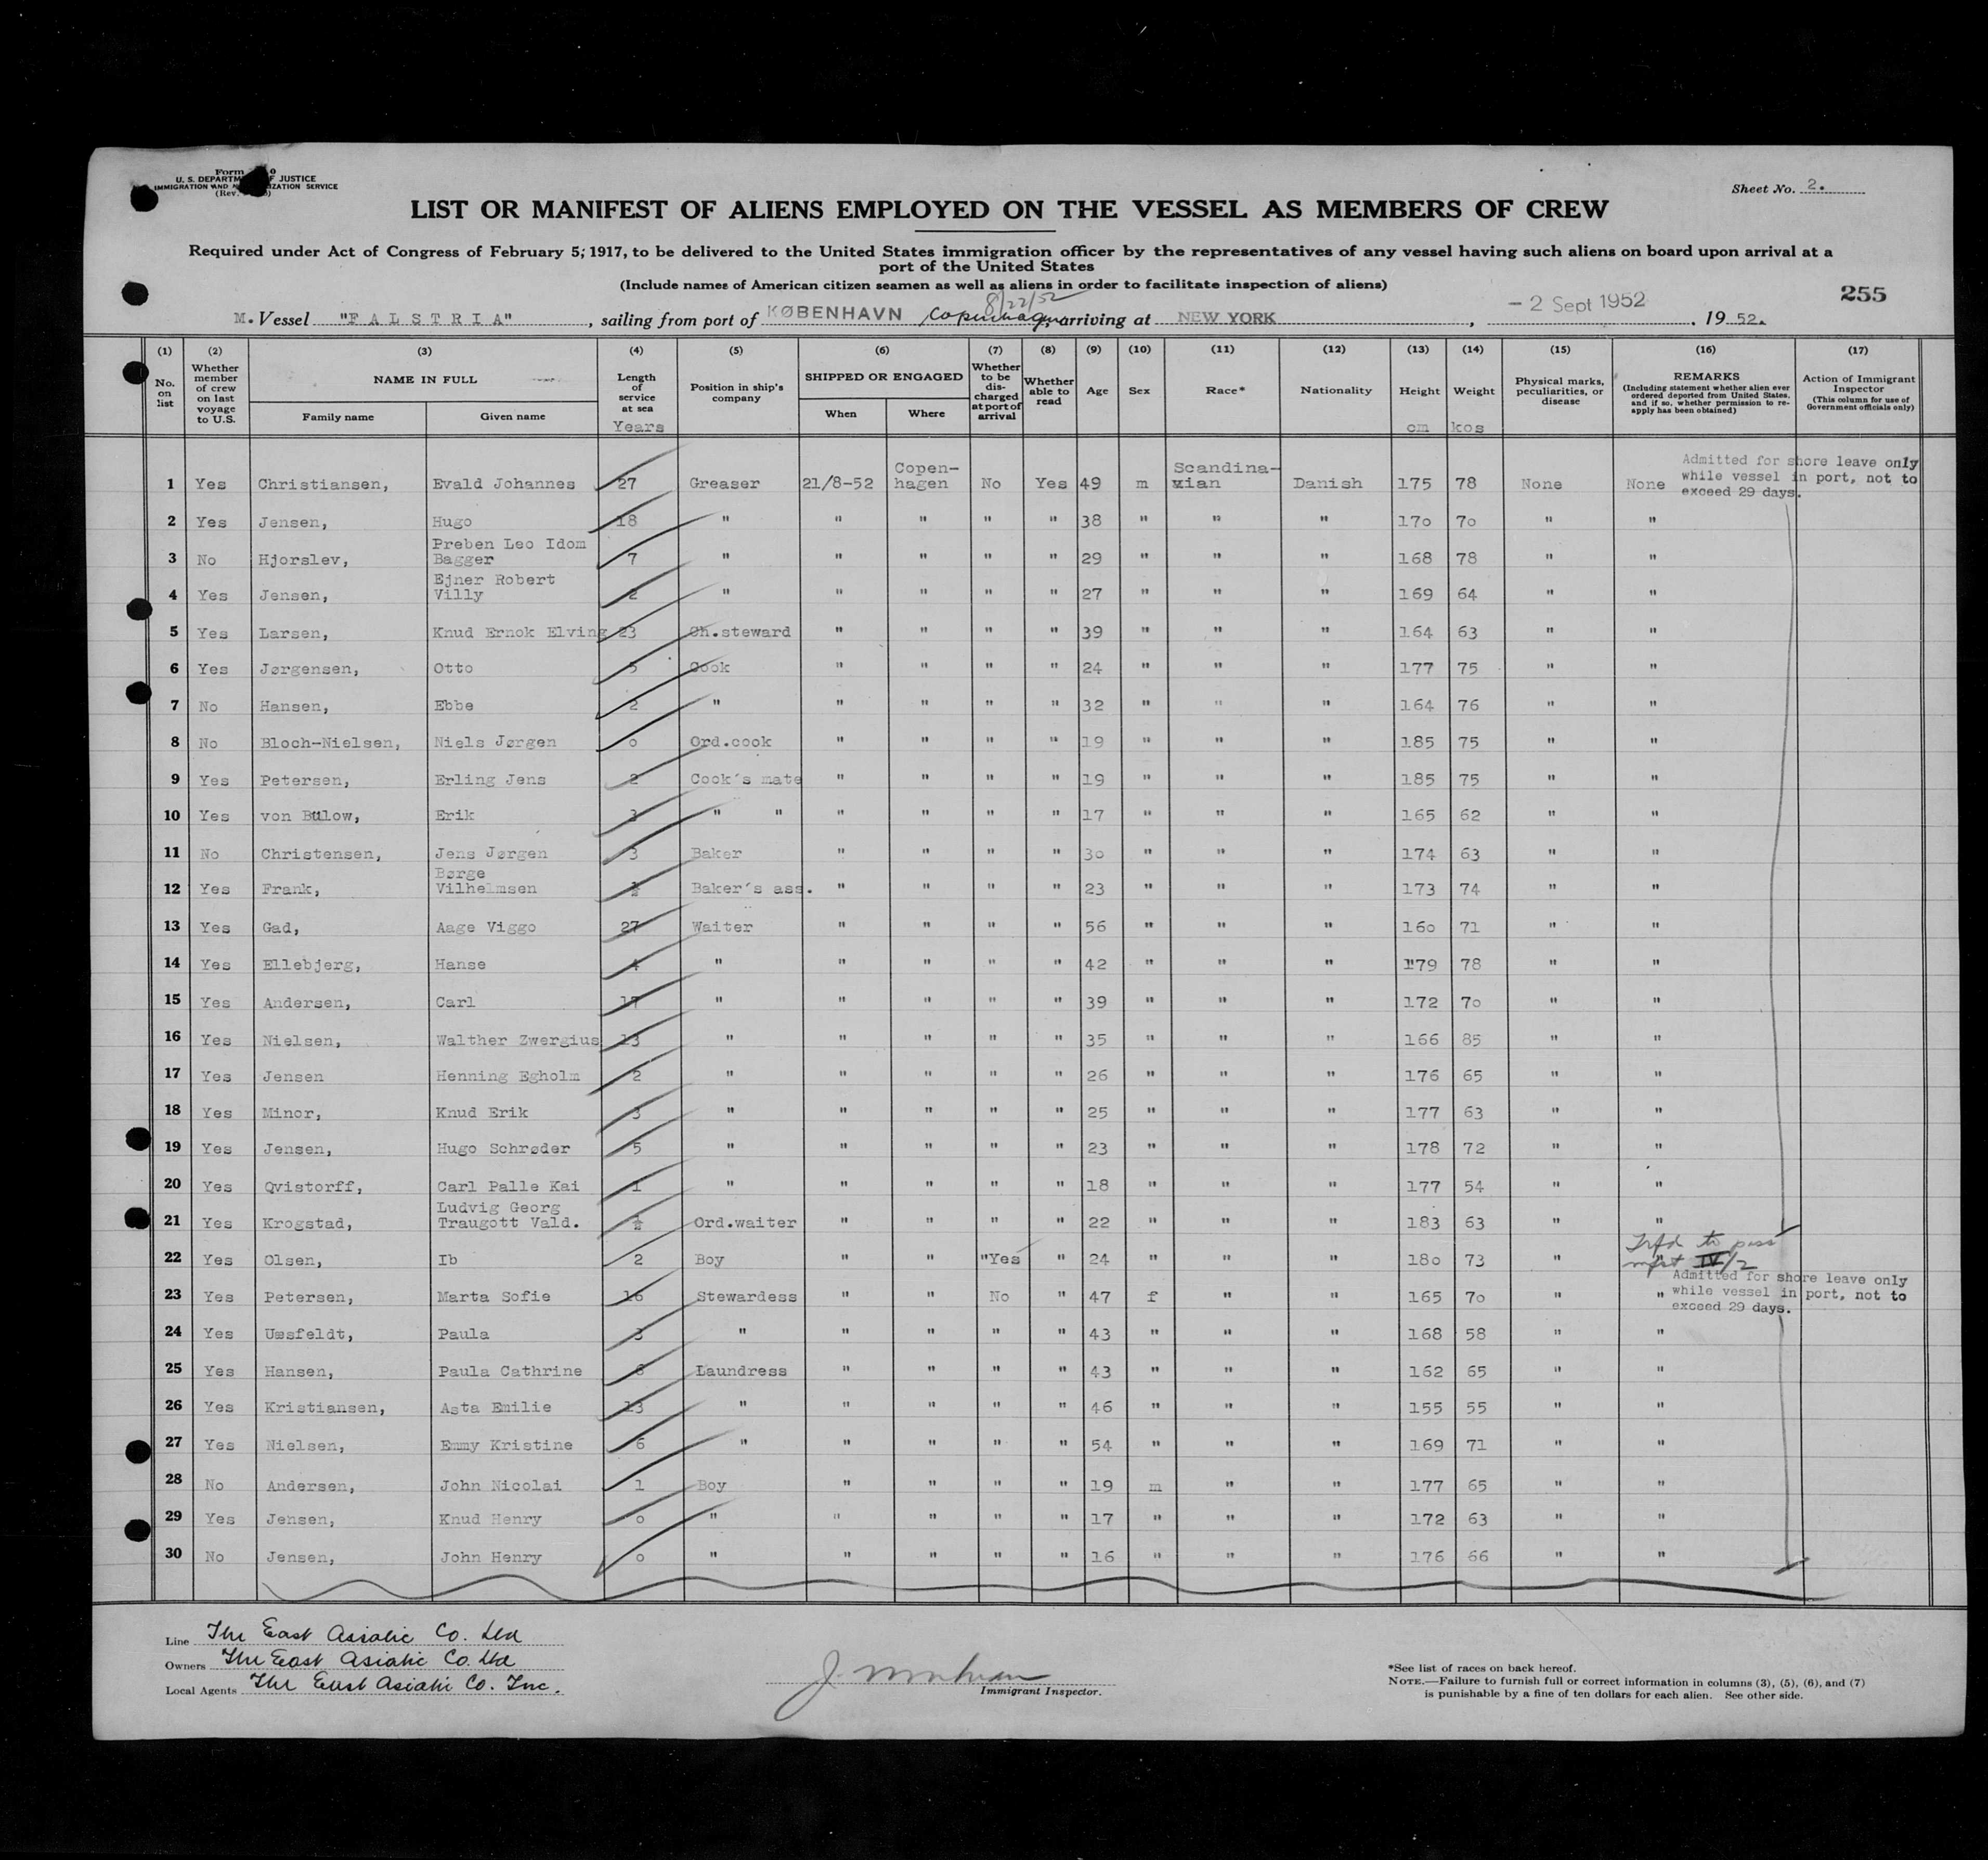 Form 0
U. S. DEPARTM F JUSTICE
IMMIGRATION AND IZATION SERVICE
(Rev. )
Sheet No. 2.
LIST OR MANIFEST OF ALIENS EMPLOYED ON THE VESSEL AS MEMBERS OF CREW
Required under Act of Congress of February 5, 1917, to be delivered to the United States immigration officer by the representatives of any vessel having such aliens on board upon arrival at a
port of the United States
(Include names of American citizen seamen as well as aliens in order to facilitate inspection of aliens)
255
8/22/52
M. Vessel "FALSTRIA", sailing from port of KØBENHAVN Copenhagen, arriving at NEW YORK, – 2 Sept 1952, 1952.
(1) (2) (3) (4) (5) (6) (7) (8) (9) (10) (11) (12) (13) (14) (15) (16) (17)
No. on list
Whether member of crew on last voyage to U.S.
NAME IN FULL
Family name Given name
Length of service at sea
Years
Position in ship's company
SHIPPED OR ENGAGED
When Where
Whether to be discharged at port of arrival
Whether able to read
Age Sex Race* Nationality Height Weight
cm kos
Physical marks, peculiarities, or disease
REMARKS
(Including statement whether alien ever ordered deported from United States, and if so, whether permission to re-apply has been obtained)
Action of Immigrant Inspector
(This column for use of Government officials only)
1 Yes Christiansen, Evald Johannes 27 Greaser 21/8-52 Copen-hagen No Yes 49 m Scandina-vian Danish 175 78 None None
Admitted for shore leave only
while vessel in port, not to
exceed 29 days.
2 Yes Jensen, Hugo 18 " " " " " 38 " " " 170 70 " "
3 No Hjorslev, Preben Leo Idom Bagger 7 " " " " " 29 " " " 168 78 " "
4 Yes Jensen, Ejner Robert Villy 2 " " " " " 27 " " " 169 64 " "
5 Yes Larsen, Knud Ernok Elving 23 Ch.steward " " " " 39 " " " 164 63 " "
6 Yes Jørgensen, Otto 5 Cook " " " " 24 " " " 177 75 " "
7 No Hansen, Ebbe 2 " " " " " 32 " " " 164 76 " "
8 No Bloch-Nielsen, Niels Jørgen 0 Ord.cook " " " " 19 " " " 185 75 " "
9 Yes Petersen, Erling Jens 2 Cook's mate " " " " 19 " " " 185 75 " "
10 Yes von Bülow, Erik 3 " " " " " " 17 " " " 165 62 " "
11 No Christensen, Jens Jørgen 3 Baker " " " " 30 " " " 174 63 " "
12 Yes Frank, Børge Vilhelmsen ½ Baker's ass. " " " " 23 " " " 173 74 " "
13 Yes Gad, Aage Viggo 27 Waiter " " " " 56 " " " 160 71 " "
14 Yes Ellebjerg, Hanse 4 " " " " " 42 " " " 179 78 " "
15 Yes Andersen, Carl 17 " " " " " 39 " " " 172 70 " "
16 Yes Nielsen, Walther Zwergius 13 " " " " " 35 " " " 166 85 " "
17 Yes Jensen Henning Egholm 2 " " " " " 26 " " " 176 65 " "
18 Yes Minor, Knud Erik 3 " " " " " 25 " " " 177 63 " "
19 Yes Jensen, Hugo Schrøder 5 " " " " " 23 " " " 178 72 " "
20 Yes Qvistorff, Carl Palle Kai 1 " " " " " 18 " " " 177 54 " "
21 Yes Krogstad, Ludvig Georg Traugott Vald. ½ Ord.waiter " " " " 22 " " " 183 63 " "
22 Yes Olsen, Ib 2 Boy " " "Yes " 24 " " " 180 73 " "
Trfd to pass
mfst IV/2
23 Yes Petersen, Marta Sofie 16 Stewardess " " No " 47 f " " 165 70 " "
Admitted for shore leave only
while vessel in port, not to
exceed 29 days.
24 Yes Uæsfeldt, Paula 3 " " " " " 43 " " " 168 58 " "
25 Yes Hansen, Paula Cathrine 6 Laundress " " " " 43 " " " 162 65 " "
26 Yes Kristiansen, Asta Emilie 13 " " " " " 46 " " " 155 55 " "
27 Yes Nielsen, Emmy Kristine 6 " " " " " 54 " " " 169 71 " "
28 No Andersen, John Nicolai 1 Boy " " " " 19 m " " 177 65 " "
29 Yes Jensen, Knud Henry 0 " " " " " 17 " " " 172 63 " "
30 No Jensen, John Henry 0 " " " " " 16 " " " 176 66 " "
Line The East Asiatic Co. Ltd
Owners The East Asiatic Co. Ltd
Local Agents The East Asiatic Co. Inc.
Immigrant Inspector.
*See list of races on back hereof.
NOTE.—Failure to furnish full or correct information in columns (3), (5), (6), and (7)
is punishable by a fine of ten dollars for each alien. See other side.